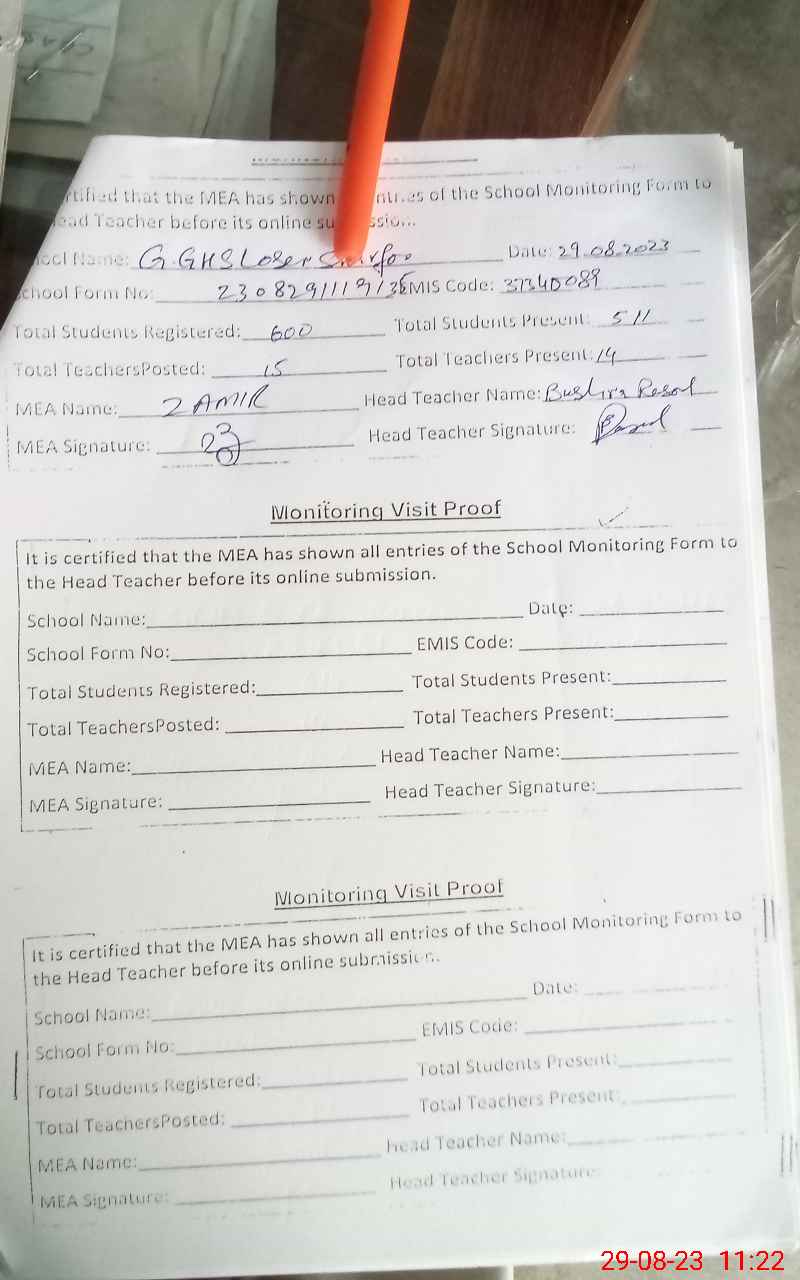 rtified that the MEA has shown ntries of the School Monitoring Form to
ead Teacher before its online su ssio..
ool Name: G.GHS Loser Date: 29.08.2023
School Form No: EMIS Code: 37340089
Total Students Registered: 600 Total Students Present: 511
Total TeachersPosted: 15 Total Teachers Present: 14
MEA Name: ZAMIR Head Teacher Name: Bushra Rasol
MEA Signature: Head Teacher Signature:
Monitoring Visit Proof
It is certified that the MEA has shown all entries of the School Monitoring Form to
the Head Teacher before its online submission.
School Name: Date:
School Form No: EMIS Code:
Total Students Registered: Total Students Present:
Total TeachersPosted: Total Teachers Present:
MEA Name: Head Teacher Name:
MEA Signature: Head Teacher Signature:
Monitoring Visit Proof
It is certified that the MEA has shown all entries of the School Monitoring Form to
the Head Teacher before its online submission.
School Name: Date:
School Form No: EMIS Code:
Total Students Registered: Total Students Present:
Total TeachersPosted: Total Teachers Present:
MEA Name: Head Teacher Name:
MEA Signature: Head Teacher Signature:
29-08-23 11:22